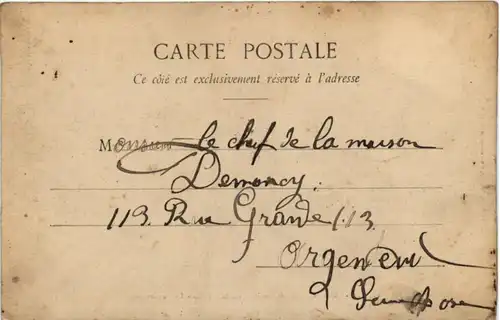 CARTE POSTALE
Ce côté est exclusivement réservé à l'adresse
Monsieur le chef de la maison
Demoncy.
113. Rue Grande 113
Argenteui